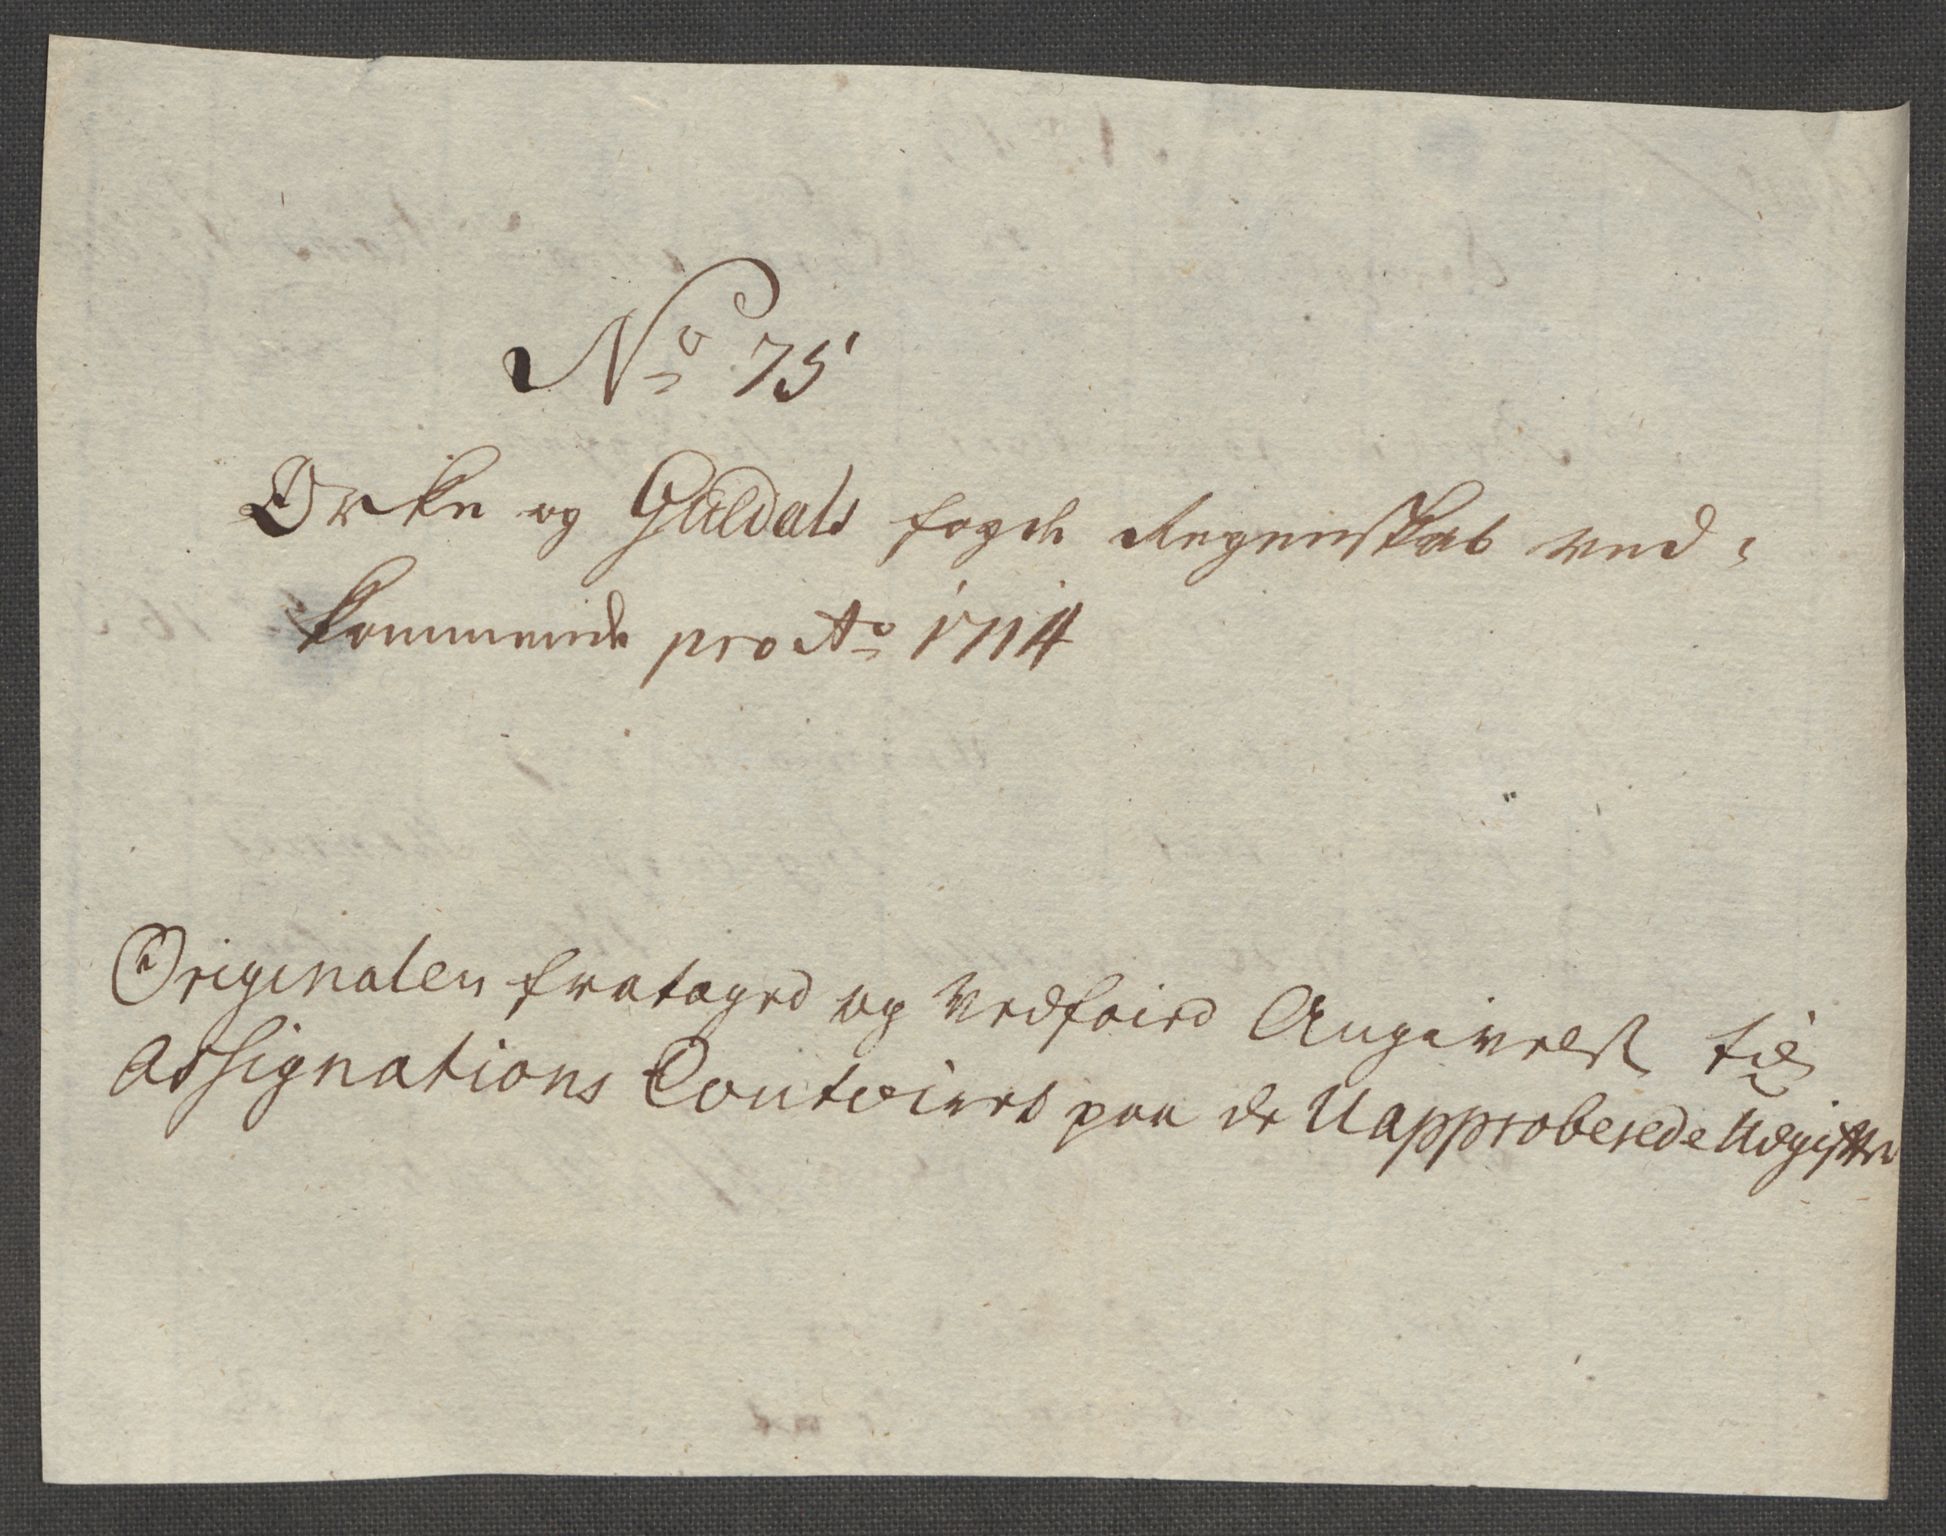 No 75
Orke og Guldals fogde Regenskab ved,
kommende pro Ao 1714
Originalen frataged og vedføied Angivelse til
Assignations Contoiret paa de Uapproberede Udgifter